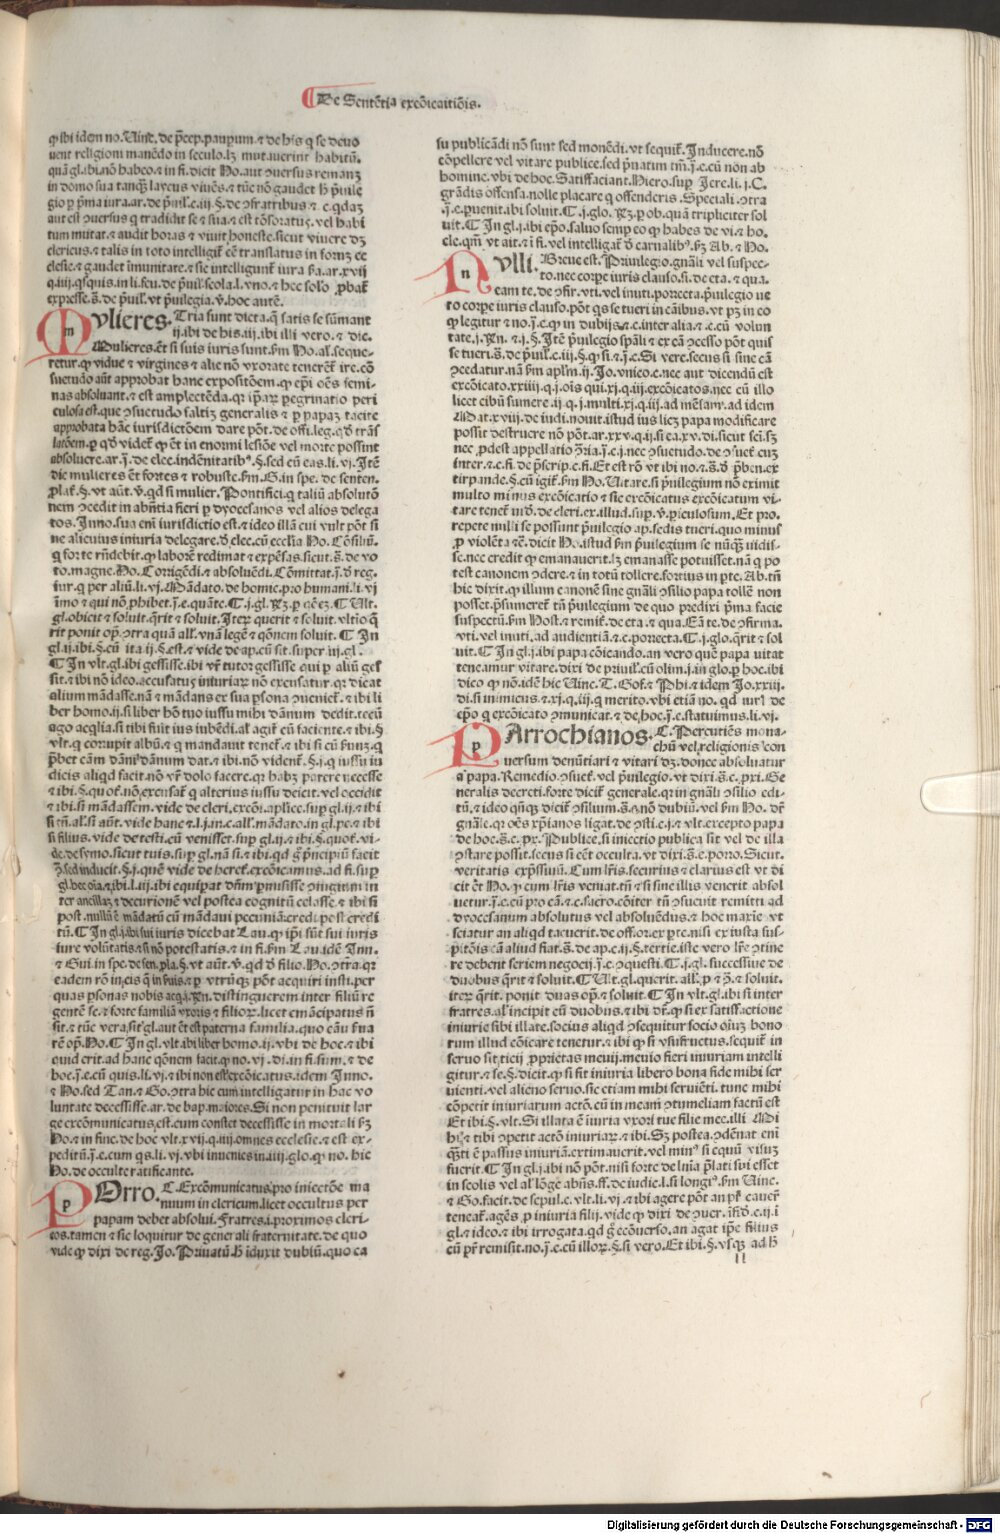 De Sentētia excōicatiōis.
ꝙ ibi idem no. Vinc. de p̄cep. paupum. ⁊ de his q se deuo
uent religioni manēdo in seculo. lꝫ mutauerint habitū.
in domo sua tanq̄ laycus viuēs. ⁊ tūc nō gaudet h̄ p̄uile
aut est ꝯuersus q tradidit se ⁊ sua. ⁊ est tōsoratus. vel habi
tum mutat. ⁊ audit horas ⁊ viuit honeste. sicut viuere dꝫ
clericus. ⁊ talis in toto intelligit̄ eē translatus in formā ec
clesie. ⁊ gaudet īmunitate. ⁊ sic intelligunt̄ iura p̄a. ar. xvij
expresse. s̄. de p̄uil. vt p̄uilegia. v̄. hoc autē.
MVlieres. Tria sunt dicta. q̄ satis se sūmant
ij. ibi de his. iij. ibi illi vero. ⁊ dic.
Mulieres. et̄ si suis iuris sunt. s̄m No. al. seque
retur. ꝙ vidue ⁊ virgines ⁊ alie nō vxorate tenerēt̄ ire. cō
suetudo aūt approbat hanc expositōem. ꝙ ep̄i oēs femi
nas absoluant. ⁊ est amplectēda. qr ip̄aꝝ peregrinatio peri
culosa est. que ꝯsuetudo saltē generalis ⁊ p papā tacite
approbata hāc iurisdictōem dare pōt. de offi. leg. qd̄ trās
latōem. p qd̄ videt̄ ꝙ et̄ in enormi lesiōe vel morte possint
absoluere. ar. j. de elec. indēnitatibꝰ. §. sed cū eas. li. vj. Itē
dic mulieres et̄ fortes ⁊ robuste. s̄m G. in spe. de senten.
plat. §. vt aūt. v̄. qd si mulier. Pontifici. q taliū absolutō
nem ꝯcedit in abn̄tia fieri p dyocesanos vel alios delega
tos. Inno. sua eni iurisdictio est. ⁊ ideo illā cui vult pōt si
ne alicuius iniuria delegare. d̄ elec. cū ecclia No. Cōsiliū.
q forte rn̄debit. ꝙ laborē redimat ⁊ expēsas. sicut. s̄. de vo
to. magne. No. Corrigēdi. ⁊ absoluēdi. Cōmittat. j̄. d̄ reg.
iur. q per aliū. li. vj. Mādato. de homic. pro humani. li. vj
gl. obicit ⁊ soluit. q̄rit ⁊ soluit. Iterꝫ querit ⁊ soluit. vltio q̄
rit ponit op̄. ꝯtra quā all. vnā legē ⁊ q̄onem soluit. ¶ In
gl. ij. ibi. §. cū ita ij. §. est. ⁊ vide de ap. cū sit. super iij. gl.
¶ In vlt. gl. ibi gessisse. ibi vr̄ tutor gessisse qui p aliū ges
sit. ⁊ ibi nō ideo. accusatꝰ iniuriaꝝ nō excusatur. qr dicat
alium mādasse. nā ⁊ mādans ex sua p̄sona ꝯuenict̄. ⁊ ibi li
ber homo. ij. si liber hō tuo iussu mihi dānum dedit. tecū
ago acq̄lia. si tibi fuit ius iubēdi. al agit̄ cū faciente. ⁊ ibi. §
vlt. q corrupit albū. ⁊ q mandauit tenet̄. ⁊ ibi si cū seruus. q
p̄bet cām dāni dānum dat. ⁊ ibi. nō videnť. §. j. q iussu iu
dicis aliqd facit. nō vr̄ dolo facere. qr habꝫ parere necesse
⁊ ibi. §. quoť. nō excusat̄ q alterius iussu deicit. vel occidit
⁊ ibi. si mādassem. vide de cleri. excōi. aplice. sup gl. ij. ⁊ ibi
si filius. vide de testi. cū venisset. sup gl. ij. ⁊ ibi. §. quoť. vi
de. de symo. sicut tuis. sup gl. nā si. ⁊ ibi. qd ḡ p̄ncipiū facit
ꝫ sed inducit. §. j. quē vide de heret. excōicamus. ad fi. sup
ter ancillaꝫ. ⁊ decurionē vel postea cognitū celasse. ⁊ ibi si
post. nullū ē mādatū cū mādaui pecuniā credi post credi
tū. ¶ In gl. ibi sui iuris dicebat Lau. ꝙ ip̄i sūt sui iuris
iure volūtatis. ⁊ si nō potestatis. ⁊ in fi. s̄m Lau. idē Inn.
⁊ Gui. in spe. de sen. pla. §. vt aūt. v̄. qd d̄ filio. No. ꝯtra. qr
quas p̄sonas nobis acq. Ign. distinguerem inter filiū re
gentē se. ⁊ forte familiā vxoris ⁊ filioꝝ. licet emācipatus n̄
sit. ⁊ tūc vera. sit gl. aut et̄ est paterna familia. quo cāu fua
rē op̄. No. ¶ In gl. vlt. ibi liber homo. ij. vbi de hoc. ⁊ ibi
quid erit. ad hanc q̄onem facit. ꝙ no. vj. di. in fi. sum. ⁊ de
hoc. j̄. e. cū quis. li. vj. ⁊ ibi non esse excōicatus. idem Inno.
⁊ No. sed Tan. ⁊ Go. ꝯtra hic cum intelligatur in hac vo
luntate decessisse. ar. de bap. maiores. Si non penituit lar
ge excōmunicatus est. cum constet decessisse in mortali s̄m
No. ⁊ in sinc. de hoc vlt. xvij. q. iiij. omnes ecclesie. ⁊ est ex
peditū. j̄. e. cum qs. li. vj. vbi inuenies in. iiij. glo. ꝙ no. hic
No. de occulte ratificante.
POrro. ¶. Excōmunicatus pro iniectōe ma
nuum in clericum. licet occultus per
papam debet absolui. Fratres. i. proximos cleri
cos. tamen ⁊ sic loquitur de generali fraternitate. de quo
vide ꝙ dixi de reg. Jo. Priuatū h̄ iduxit dubiū. quo ca
su publicādi nō sunt sed monēdi. vt sequit̄. Inducere. nō
cōpellere vel vitare publice. sed p̄uatim tm̄. j̄. e. cū non ab
homine. vbi de hoc. Satisfaciant. Hiero. sup Jere. li. j. C.
grādis offensa. nolle placare q offenderis. Speciali. ꝯtra
j̄. e. p̄uenit. ibi soluit. ¶. j. glo. Rꝫ. p ob. quā tripliciter sol
uit. ¶ In gl. j. ibi ep̄o. saluo semp eo ꝙ habes de vi. ⁊ ho.
cle. qm̄. vt ait. ⁊ ī fi. vel intelligat̄ d̄ carnalibꝰ. s̄m Ab. ⁊ No.
NVlli. Breue est. Priuilegio. gn̄ali vel suspec
to. nec corpe iuris clauso. si. de eta. ⁊ qua.
eam te. de ꝯfir. vti. vel inuti. porrecta. p̄uilegio ve
ro corpe iuris clauso. pōt qs se tueri in cāibus. vt pꝫ in eo
ꝙ legitur ⁊ no. j̄. e. ꝙ in dubijs. ⁊. c. inter alia. ⁊. c. cū volun
tate. j. Rn. ⁊. j. §. Itē p̄uilegio sp̄ali ⁊ ex cā ꝯcesso pōt quis
se tueri. s̄. de p̄uil. c. iij. §. ꝙ si. ⁊. j̄. e. Si vere. secus si sine cā
ꝯcedatur. nā s̄m aplm. ij. Jo. vnico. c. nec aut dicendū est
excōicato. xxiiij. q. j. oīs qui. xj. q. iij. excōicatos. nec cū illo
licet cibū sumere. ij. q. j. multi. xj. q. iij. ad mēsam. ad idem
Mat. xviij. de iudi. nouit. istud ius licꝫ papa modificare
possit destruere nō pōt. ar. xxv. q. ij. si ea. xv. di. sicut sc̄i. sꝫ
nec pdest appellatio ꝯria. j̄. e. j. nec ꝯsuetudo. de ꝯsuet̄ cuꝫ
inter. ⁊. c. fi. de p̄scrip. c. fi. Et est rō vt ibi no. ⁊. s̄. d̄ p̄ben. ex
tirpande. §. cū igit̄. s̄m No. Vitare. si p̄uilegium nō eximit
multo minus excōicatio ⁊ sic excōicatus excōicatum vi
tare tenet̄ ut̄. d̄. de cleri. ex. illud. sup. v̄. piculosum. Et pro.
repete nulli se possunt p̄uilegio ap. sedis tueri. quo minus
p violēta ⁊c̄. dicit No. istud s̄m p̄uilegium se nūq̄ vidis
se. nec credit ꝙ emanauerit. lꝫ emanasse potuisset. nā q po
test canonem ꝯdere. ⁊ in totū tollere. fortius in p̄te. Ab. tn̄
hic dixit. ꝙ illum canonē sine gn̄ali ꝯsilio papa tolle non
posset. p̄sumeret̄ tn̄ p̄uilegium de quo predixi p̄ma facie
suspectū. s̄m Host. ⁊ remit̄. de eta. ⁊ qua. Eā te. de ꝯfirma.
vti. vel inuti. ad audientiā. ⁊. c. porrecta. ¶. j. glo. q̄rit ⁊ sol
uit. ¶ In gl. j. ibi papa cōicando. an vero quē papa vitat
teneamur vitare. dixi de priuil. cū olim. j. in glo. p hoc. ibi
dico ꝙ nō. idē hic Vinc. T. Gof. ⁊ Phi. ⁊ idem Jo. xxiij.
di. si inimicus. ⁊. xj. q. iij. q̄ merito. vbi etiā no. qd iuri d̄
ep̄o q excōicato ꝯmunicat. ⁊ de hoc. j̄. e. statuimus. li. vj.
PArrochianos. ¶. Percutiēs mona
chū vel religionis con
uersum denūtiari ⁊ vitari dꝫ. donec absoluatur
a papa. Remedio. ꝯsuet̄. vel p̄uilegio. vt dixi. s̄. c. pxi. Ge
neralis decreti. forte dicit̄ generale. qr in gn̄ali ꝯsilio edi
tū. ⁊ ideo qn̄q̄ dicit̄ ꝯsilium. s̄. ⁊ nō dubiū. vel s̄m No. dr̄
gn̄ale. qr oēs xp̄ianos ligat. de ꝯsti. c. j. ⁊ vlt. excepto papa
de hoc. s̄. c. px̄. Publice. si iniectio publica sit vel de illa
ꝯstare possit. secus si eēt occulta. vt dixi. s̄. c. porro. Sicut.
veritatis exp̄ssiuū. Cum lr̄is. securius ⁊ clarius est vt di
cit ēt No. ꝙ cum lr̄is veniat. tn̄ ⁊ si sine illis venerit absol
uetur. j̄. e. cū pro cā. ⁊. c. sacro. cōiter tn̄ ꝯsueuit remitti ad
dyocesanum absolutus vel absoluēdus. ⁊ hoc maxie vt
sciatur an aliqd tacuerit. de off. or. ex p̄te. nisi ex iusta sus
p̄itōis cā aliud fiat. s̄. de ap. c. ij. §. tertie. iste vero lr̄e ꝯtine
re debent seriem negocij. j̄. e. ꝯquesti. ¶. j. gl. successiue de
duobus q̄rit ⁊ soluit. ¶ Vlt. gl. querit. all. p ⁊ ꝯ. ⁊ soluit.
iteꝝ q̄rit. ponit duas op̄. ⁊ soluit. ¶ In vlt. gl. ibi si inter
fratres. al incipit cū duobus. ⁊ ibi dr̄. ꝙ si ex satisfactione
iniurie sibi illate. socius aliqd ꝯsequitur socio oīuꝫ bono
rum illud cōicare tenetur. ⁊ ibi ꝙ si vsufructus. sequit̄ in
seruo sit. ticij pprietas meuij. meuio fieri iniuriam intelli
gitur. ⁊ se. §. dicit. ꝙ si fit iniuria libero bona fide mihi ser
uienti. vel alieno seruo. sic etiam mihi seruiēti. tunc mihi
cōpetit iniuriarum actō. cū in meam ꝯtumeliam factū est
Et ibi. §. vlt. Si illata ē iniuria vxori tue filie mee. illi Mi
hi ⁊ tibi ꝯpetit actō iniuriaꝝ. ⁊ ibi. Sꝫ postea. ꝯdēnat eni
q̄ti ē passus iniuriā. extimauerit. vel minꝰ si equū visuꝫ
fuerit. ¶ In gl. j. ibi nō pōt. nisi forte de lnīa p̄lati sui esset
in scolis vel al lōge abn̄s. ff. de iudic. l. si longiꝰ. s̄m Vinc.
⁊ Go. facit. de sepul. c. vlt. li. vj. ⁊ ibi agere pōt an pr̄ cauer̄
teneat̄. agēs p iniuria filij. vide ꝙ dixi de ꝯuer. īfid̄. c. ij. ī
gl. ⁊ ideo. ⁊ ibi irrogata. qd ḡ ecōuerso. an agat ip̄e filius
cū pr̄ remisit. no. j̄. e. cū illoꝝ. §. si vero. Et ibi. §. vsq̄ ad h̄
ll
Digitalisierung gefördert durch die Deutsche Forschungsgemeinschaft - DFG